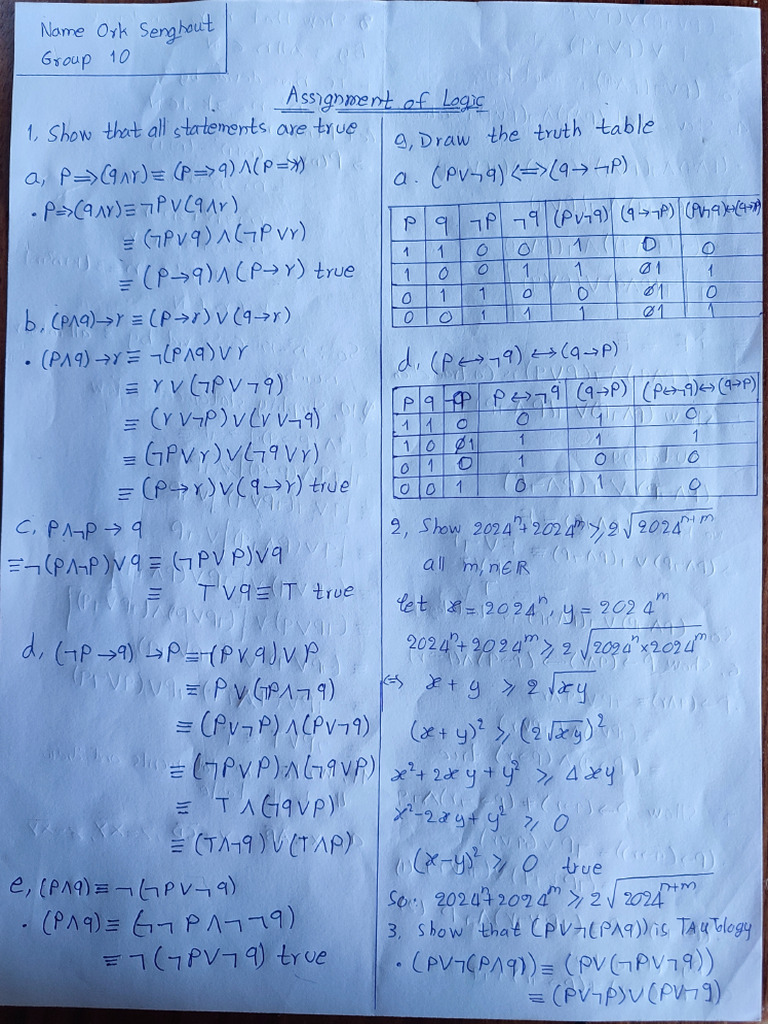 Name Ork Senghout
Group 10
Assignment of Logic
1, Show that all statements are true
a, P⇒(q∧r)≡(P⇒q)∧(P⇒r)
• P⇒(q∧r)≡¬P∨(q∧r)
≡(¬P∨q)∧(¬P∨r)
≡(P→q)∧(P→r) true
b, (P∧q)→r≡(P→r)∨(q→r)
• (P∧q)→r≡¬(P∧q)∨r
≡ r∨(¬P∨¬q)
≡(r∨¬P)∨(r∨¬q)
≡(¬P∨r)∨(¬q∨r)
≡(P→r)∨(q→r) true
c, P∧¬P→q
≡¬(P∧¬P)∨q≡(¬P∨P)∨q
≡ T∨q≡T true
d, (¬P→q)→P≡¬(P∨q)∨P
≡P∨(¬P∧¬q)
≡(P∨¬P)∧(P∨¬q)
≡(¬P∨P)∧(¬q∨P)
≡ T∧(¬q∨P)
≡(T∧¬q)∨(T∧P)
e, (P∧q)≡¬(¬P∨¬q)
• (P∧q)≡(¬¬P∧¬¬q)
≡¬(¬P∨¬q) true
9, Draw the truth table
a. (P∨¬q)<=>(q→¬P)
P q ¬P ¬q (P∨¬q) (q→¬P) (P∨¬q)↔(q→¬P)
1 1 0 0 1 0 0
1 0 0 1 1 1 1
0 1 1 0 0 1 0
0 0 1 1 1 1 1
d, (P↔¬q)↔(q→P)
P q P↔¬q (q→P) (P↔¬q)↔(q→P)
1 1 0 0 1 0
1 0 1 1 1 1
0 1 0 1 0 0
0 0 1 0 1 0
2, Show 2024ⁿ+2024ᵐ⩾2√2024ⁿ⁺ᵐ
all m,n∈R
let x=2024ⁿ, y=2024ᵐ
2024ⁿ+2024ᵐ⩾2√2024ⁿ×2024ᵐ
<=> x+y ⩾2√xy
(x+y)²⩾(2√xy)²
x²+2xy+y² ⩾ 4xy
x²-2xy+y² ⩾ 0
(x-y)² ⩾ 0 true
So: 2024ⁿ+2024ᵐ⩾2√2024ⁿ⁺ᵐ
3, Show that (P∨¬(P∧q)) is TAUTology
• (P∨¬(P∧q))≡(P∨(¬P∨¬q))
≡(P∨¬P)∨(P∨¬q)